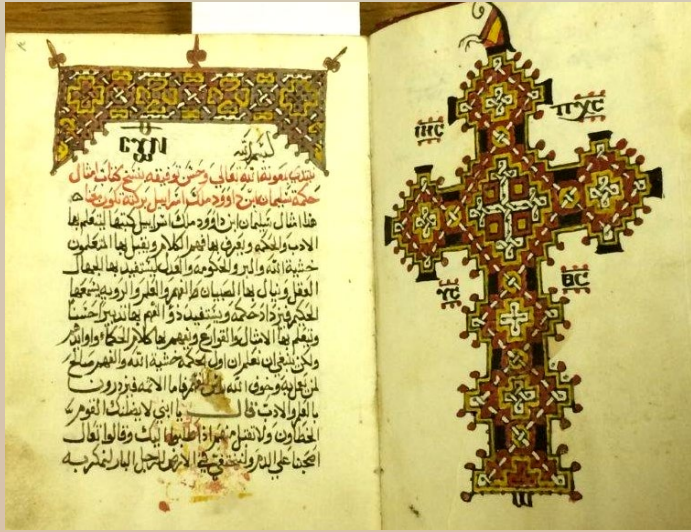 ⲥⲩⲛ
لبسم الله
نبتدى بعونة الله تعالى وحسن توفيقه بنسخ كتاب امثال
حكمة سليمان ابن داوود ملك اسراييل بركته تكون معنا
هذا امثال سليمان ابن داوود ملك اسراييل كتبها ليتعلم بها
الادب والحكمه ويعرف بها فهم الكلام ويقبل بها المتعلمين
خشية الله والبر والحكومه والعدل يستفيد بها الجهال
العقل وينال بها الصبيان الفهم والعلم والرويه يسمعها
الحكيم فيزداد حكمه ويستفيد ذو الفهم بها تدبيرا حسنا
ويتعلم بها الامثال والقوارع ويفهم بها كلام الحكماء واوابدهم
ولكن ينبغى ان نعلم ان اول الحكمة خشية الله والفهم صالح
لمن يعمل به وخوف الله فاما الاثمه فيزدرون
بالعلم والادب قال يا ابنى لا يضلنك القوم
الخطاون ولا تقبل منهم اذا طلبوا اليك وقالوا تعال
اصحبنا على الدم ولنختفى فى الارض للرجل البار لنمكر به
ⲓⲏⲥ ⲡⲭⲥ
ⲩⲥ ⲑⲥ